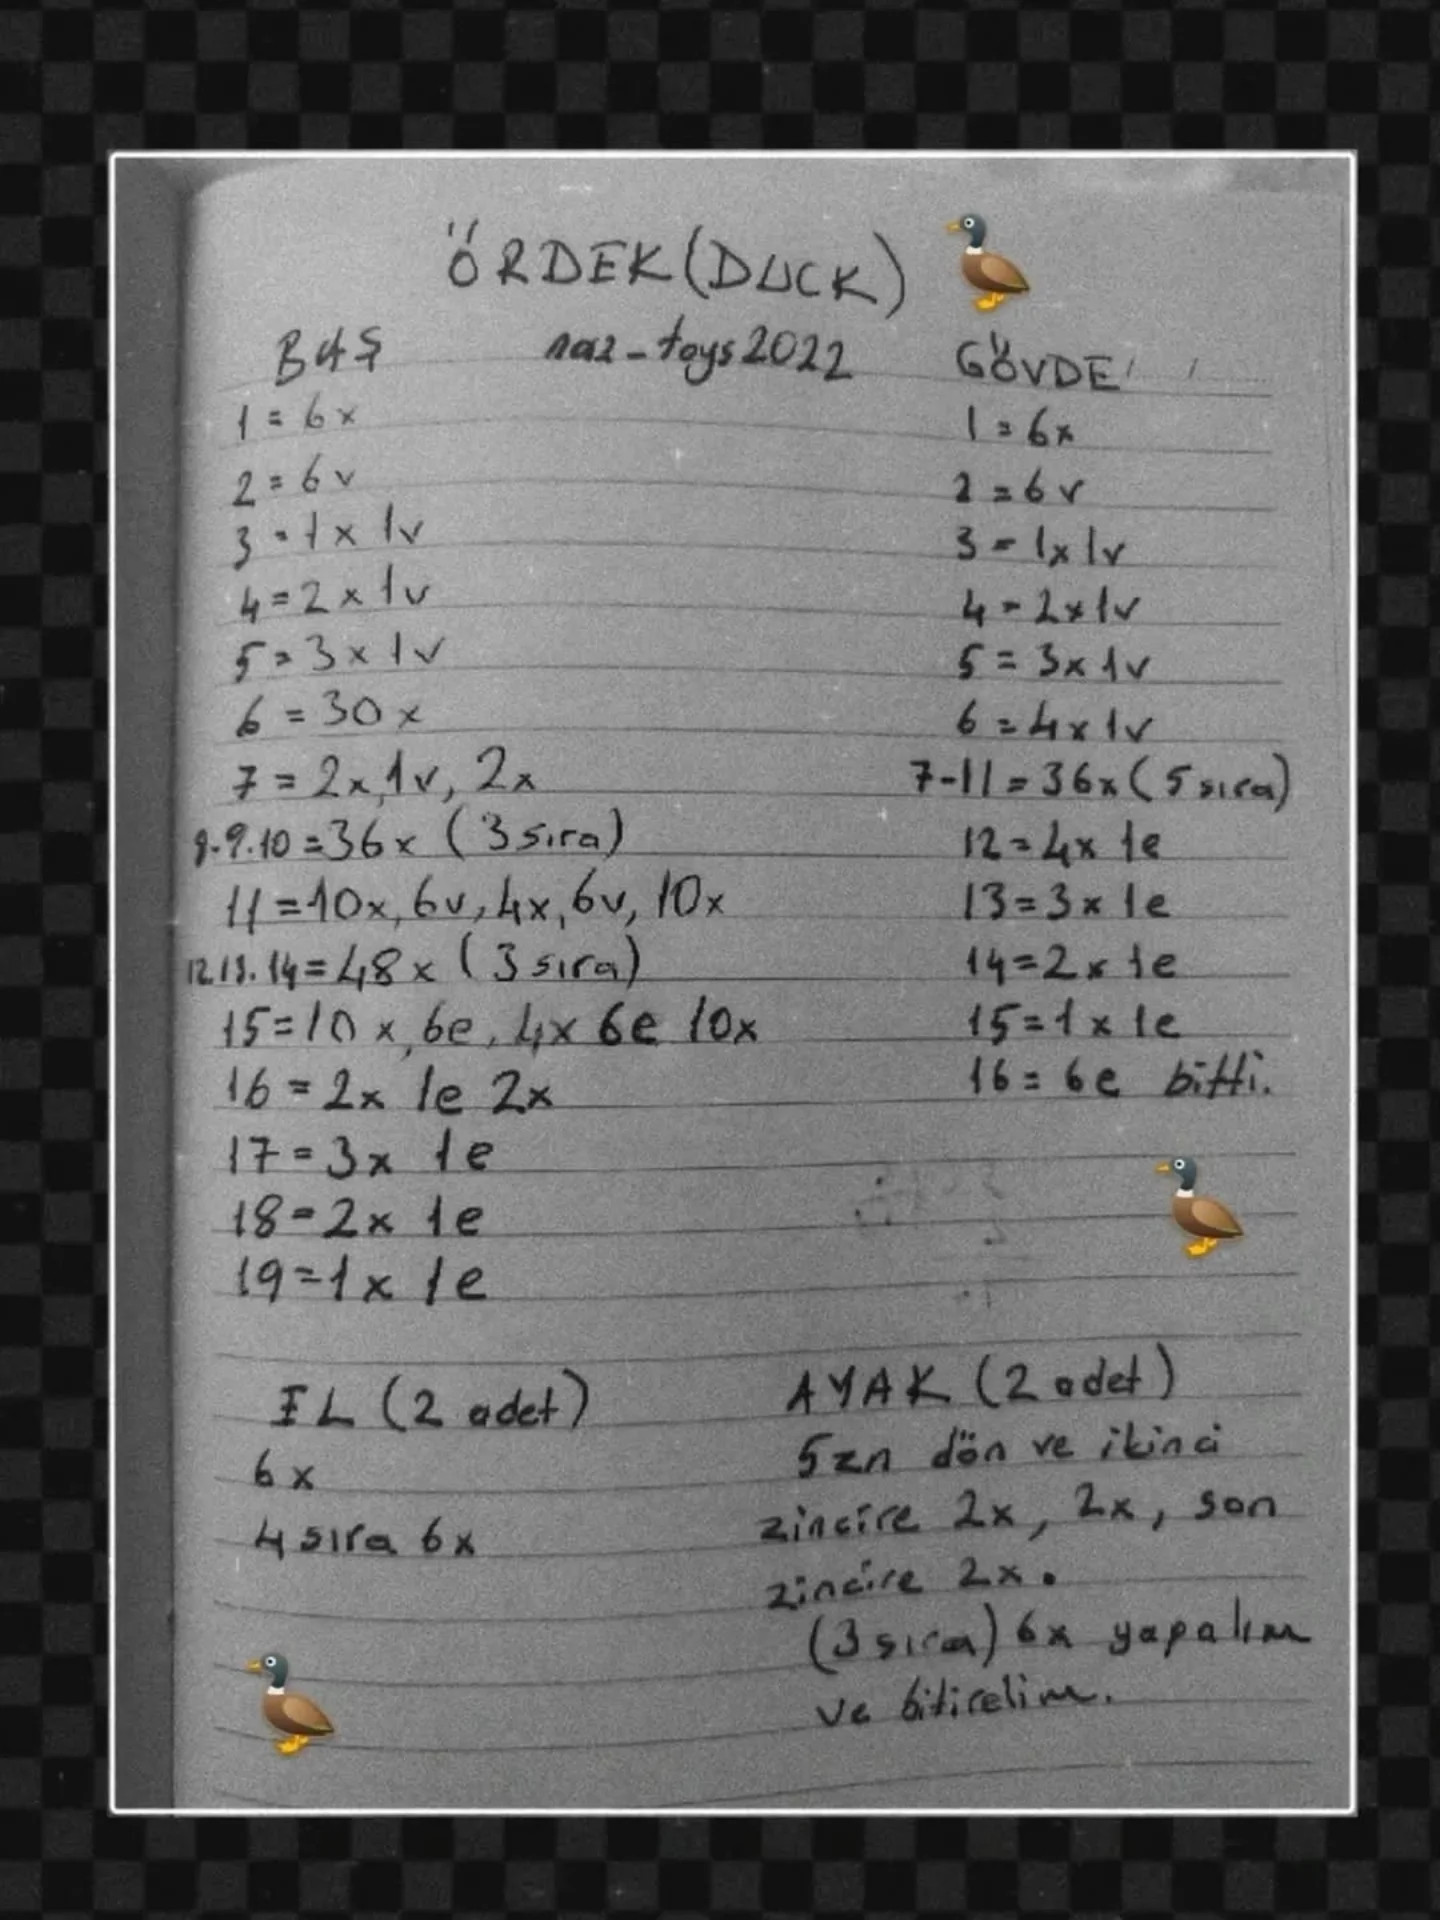 ÖRDEK(DUCK)
naz-toys2022
BAŞ
1=6x
2=6v
3=1x 1v
4=2x 1v
5=3x 1v
6=30x
7=2x,1v, 2x
8.9.10=36x (3 sıra)
11=10x, 6v, 4x, 6v, 10x
12.13.14=48x (3 sıra)
15=10x, 6e, 4x 6e 10x
16=2x 1e 2x
17=3x 1e
18=2x 1e
19=1x 1e
GÖVDE
1=6x
2=6v
3=1x 1v
4=2x 1v
5=3x 1v
6=4x 1v
7-11=36x (5 sıra)
12=4x 1e
13=3x 1e
14=2x 1e
15=1x 1e
16=6e bitti.
EL (2 adet)
6x
4 sıra 6x
AYAK (2 adet)
5zn dön ve ikinci
zincire 2x, 2x, son
zincire 2x.
(3 sıra) 6x yapalım
ve bitirelim.